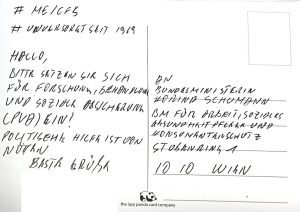 # ME/CFS
# UNVERSORGT SEIT 1969
HALLO,
BITTE SETZEN SIE SICH
FÜR FORSCHUNG, BEHANDLUNG
UND SOZIALE ABSICHERUNG
(PVA) EIN!
POLITISCHE HILFE IST VON
NÖTEN
BESTE GRÜßE
AN
BUNDESMINISTERIN
KORINNA SCHUMANN
BM FÜR ARBEIT, SOZIALES
GESUNDHEIT PFLEGE UND
KONSUMENTENSCHUTZ
STUBENRING 1
1010 WIEN
the lazy panda card company